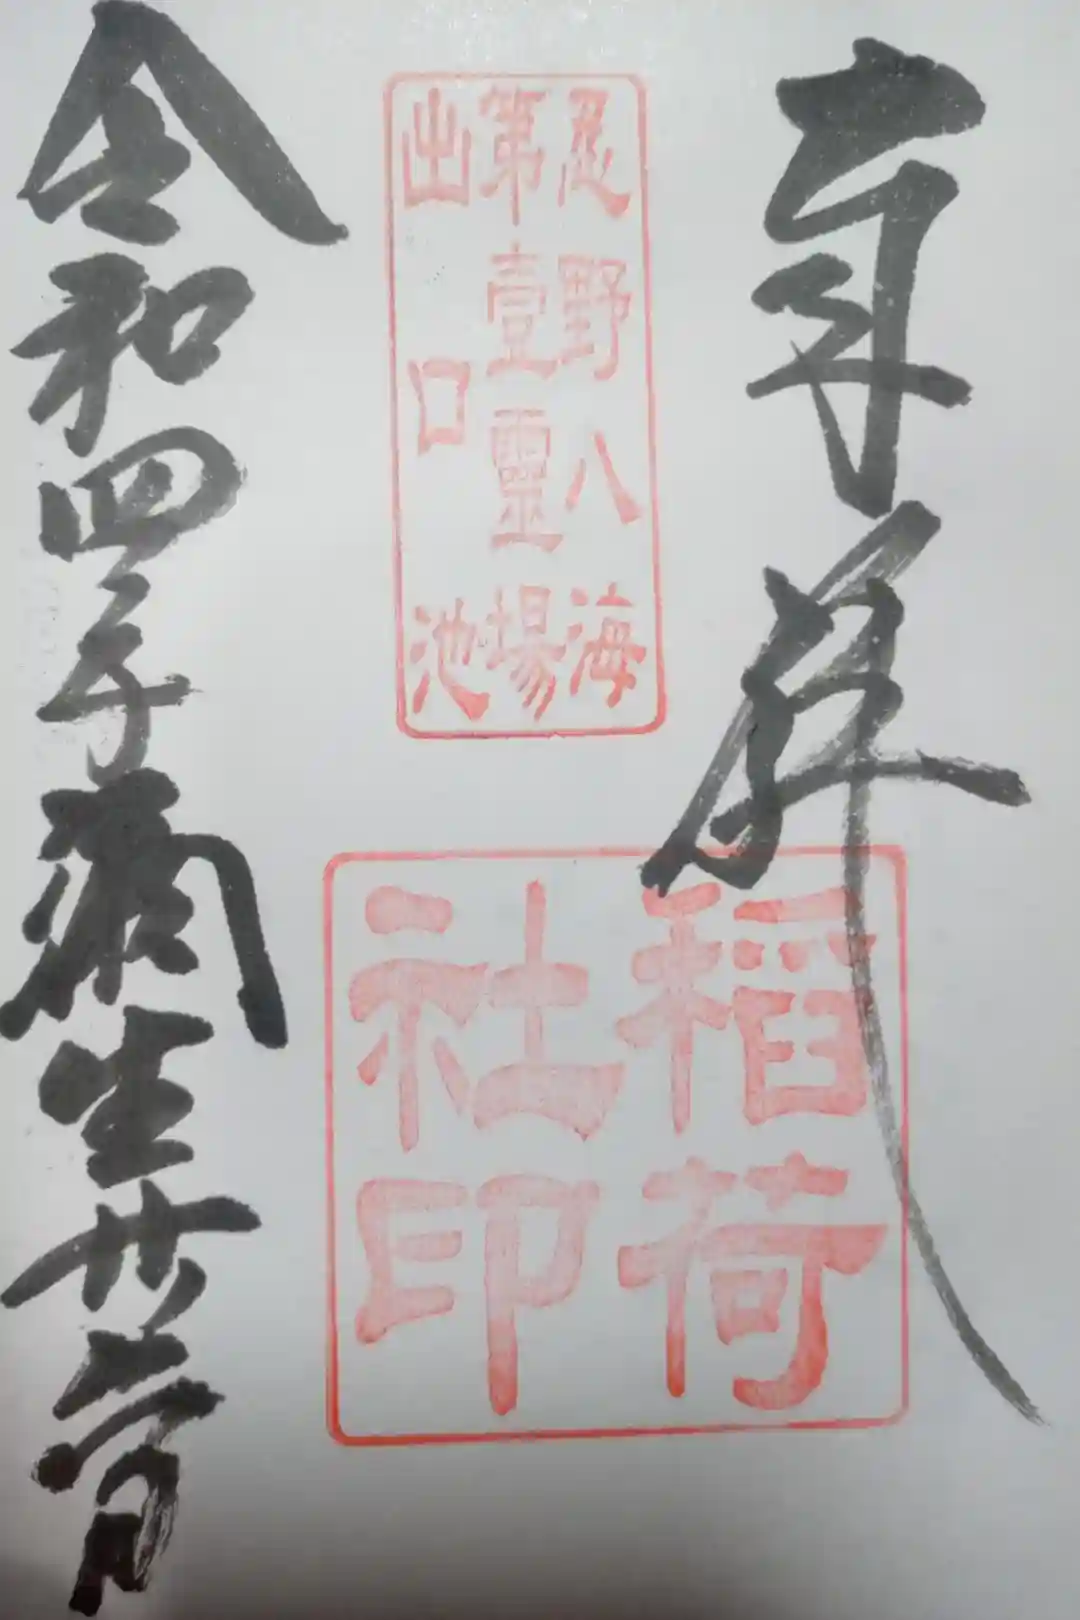 奉拝
忍野八海
第壹靈場
出口池
稻荷
社印
令和四年彌生廿六日